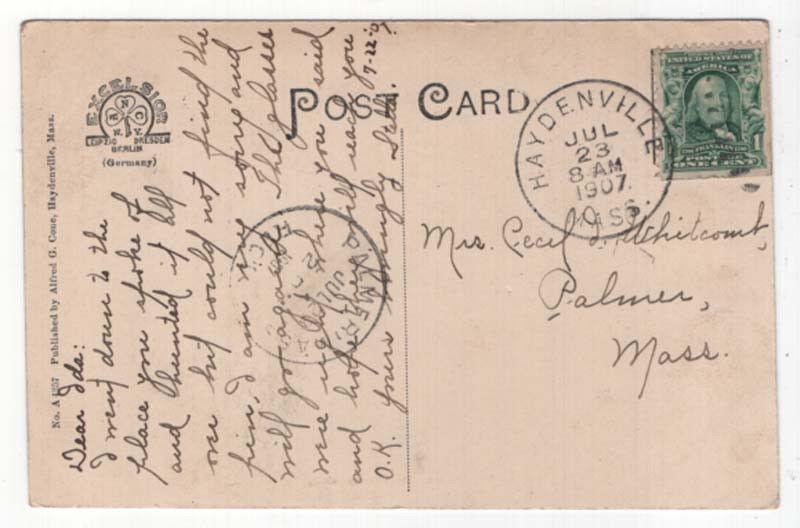 POST CARD
EXCELSIOR
N.Y.
LEIPZIG DRESDEN
BERLIN
(Germany)
No. A 4257 Published by Alfred G. Cone, Haydenville, Mass.
Dear Ida:
I went down to the
place you spoke of
and hunted it all
over but could not find the
pin, I am very sorry and
will go again. The glasses
were right where you said
and hope they will reach you
O.K. yours lovingly
7-22-07
HAYDENVILLE
JUL
23
8 AM
1907
MASS.
UNITED STATES OF AMERICA
FRANKLIN
POSTAGE
1
ONE CENT
Mrs. Cecil D. Whitcomb,
Palmer,
Mass.
PALMER